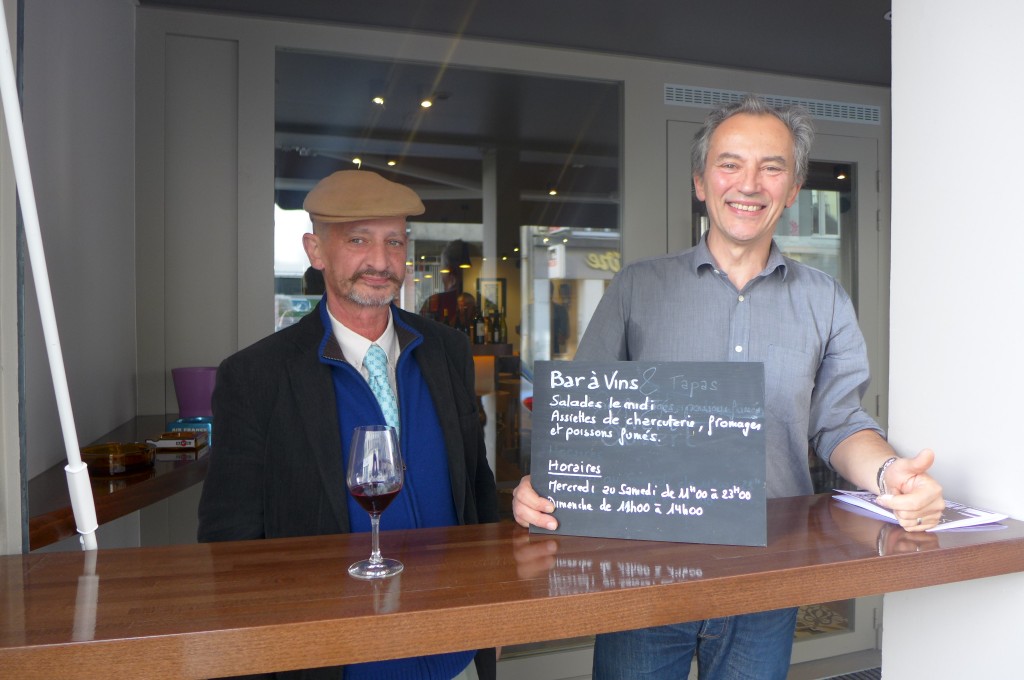 Bar à Vins & Tapas
Salades le midi
Assiettes de charcuterie, fromages
et poissons fumés.
Horaires
Mercredi au Samedi de 11H00 à 23H00
Dimanche de 11h00 à 14h00
AIR FRANCE